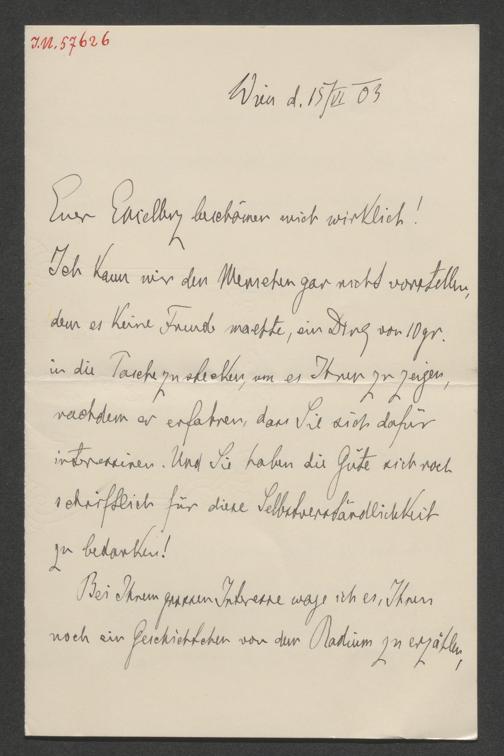 I.N. 57626
Wien d. 15/VI 03
Euer Excellenz beschämen mich wirklich!
Ich kann mir den Menschen gar nicht vorstellen,
dem es keine Freude machte, ein Ding von 10 gr.
in die Tasche zu stecken, um es Ihnen zu zeigen,
nachdem er erfahren, dass Sie sich dafür
interessiren. Und Sie haben die Güte sich noch
schriftlich für diese Selbstverständlichkeit
zu bedanken!
Bei Ihrem grossen Interesse wage ich es, Ihnen
noch ein Geschichtchen von dem Radium zu erzählen,